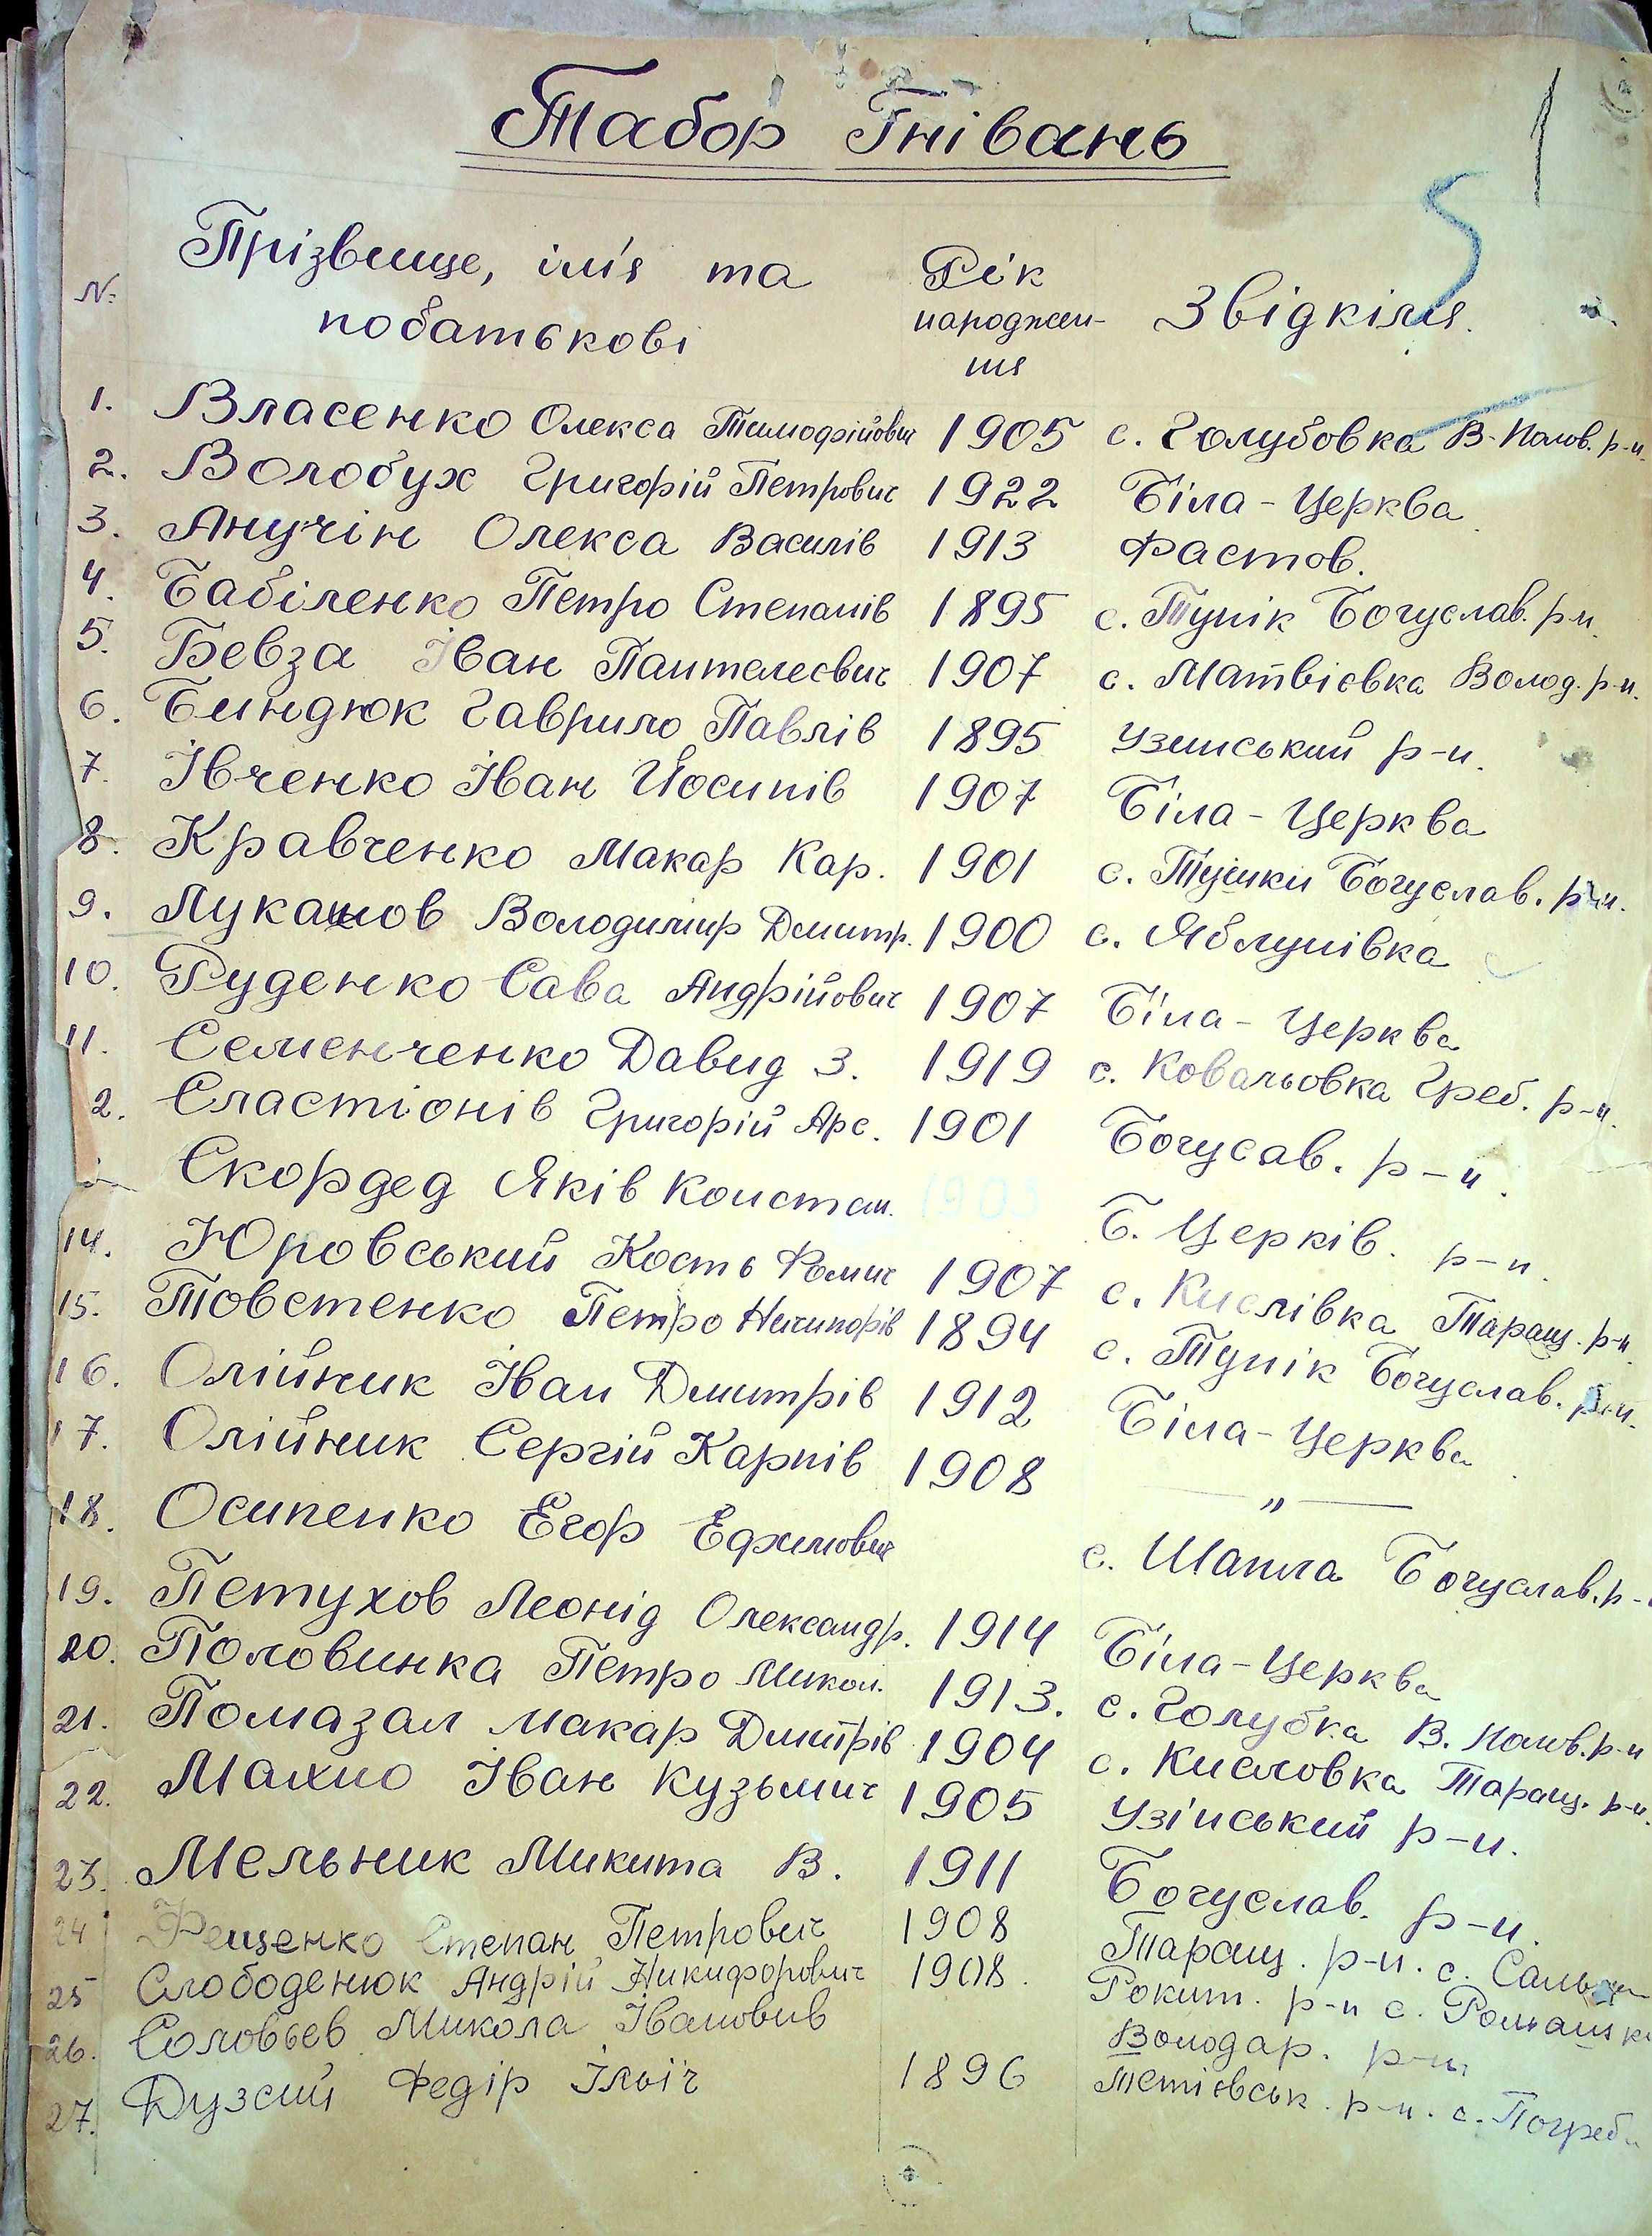 Табор Гнівань
1
5
№ Прізвище, ім'я та побатькові Рік народження Звідкіля.
1. Власенко Олекса Тимофійович 1905 с. Голубовка В-Полов. р-н.
2. Волобух Григорій Петрович 1922 Біла-Церква
3. Анучін Олекса Василів 1913 Фастов.
4. Бабіленко Петро Степанів 1895 с. Тупік Богуслав. р-н.
5. Бевза Іван Пантелеєвич 1907 с. Матвієвка Волод. р-н.
6. Биндюк Гаврило Павлів 1895 Узинський р-н.
7. Івченко Іван Йосипів 1907 Біла-Церква
8. Кравченко Макар Кар. 1901 с. Тушки Богуслав. р-н.
9. Лукашов Володимир Дмитр. 1900 с. Яблунівка
10. Руденко Сава Андрійович 1907 Біла-Церква
11. Семенченко Давид З. 1919 с. Ковальовка Греб. р-н.
2. Сластіонів Григорій Арс. 1901 Богусав. р-н.
Скордед Яків Констан. 1903 Б. Церків. р-н.
14. Юровський Кость Фомич 1907 с. Кислівка Таращ. р-н.
15. Товстенко Петро Ничипорів 1894 с. Тупік Богуслав. р-н.
16. Олійник Іван Дмитрів 1912 Біла-Церква
17. Олійник Сергій Карпів 1908 — " —
18. Осипенко Егор Ефимович с. Шапла Богуслав. р-
19. Петухов Леонід Олександр. 1914 Біла-Церква
20. Половинка Петро Микол. 1913. с. Голубка В. Полов. р-н
21. Помазал Макар Дмитрів 1904 с. Кисловка Таращ. р-н.
22. Махно Іван Кузьмич 1905 Узінський р-н.
23. Мельник Микита В. 1911 Богуслав. р-н.
24 Фещенко Степан Петрович 1908 Таращ. р-н. с.
25 Слободенюк Андрій Никифорович 1908. Рокит. р-н с.
26. Соловьев Микола Івановив Володар. р-н,
27. Федір Ільїч 1896 Тетіевськ. р-н. с. Погреб